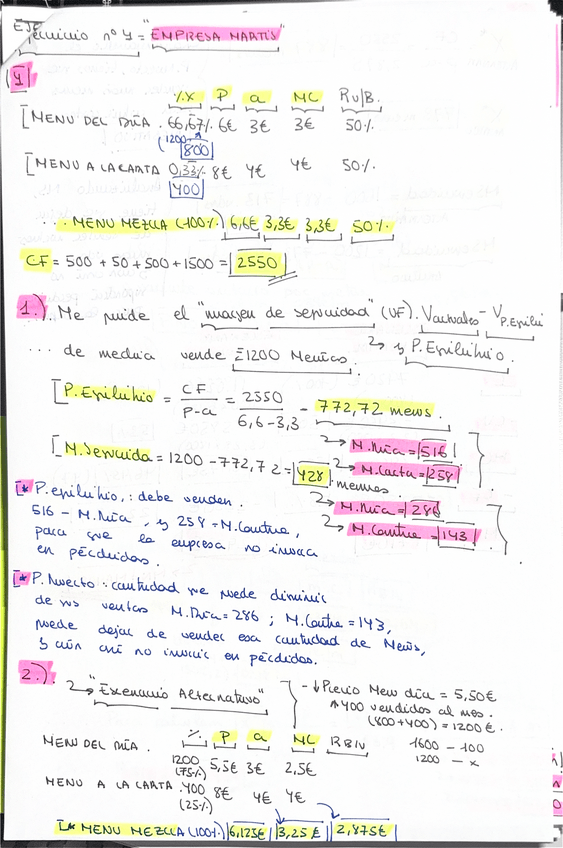 Ejercicio nº 4 = "EMPRESA MARTIS"
1
%X P a MC Rv/B.
MENU DEL DÍA . 66,67% 6€ 3€ 3€ 50%
(1200
800
MENU A LA CARTA 0,33% 8€ 4€ 4€ 50%
400
... MENU MEZCLA (100%) 6,6€ 3,3€ 3,3€ 50%
CF = 500 + 50 + 500 + 1500 = 2550
1.) Me pide el "margen de seguridad" (UF). Vactuales - V P.Equili
↳ y P. Equilibrio.
... de media vende 1200 Menús.
P. Equilibrio = CF / P-a = 2550 / 6,6-3,3 - 772,72 menus.
↳ M. Día = 516
M. Seguida = 1200 - 772,72 = 428 menues
↳ M. Carta = 258
↳ M. Día = 286
↳ M. Contra = 143
* P. equilibrio,: debe vender.
516 - M. Día, y 258 = M. Contra,
para que la empresa no incurra
en pérdidas.
* P. Muerto : cantidad que puede disminuir
de sus ventas M. Día = 286 ; M. Contra = 143,
puede dejar de vender esa cantidad de Menús,
y aún así no incurrir en pérdidas.
2.)
↳ "Escenario Alternativo"
- ↓ Precio Menu día = 5,50€
↑ 400 vendidos al mes.
(800+400) = 1200€.
%. P a MC RB/V
1600 - 100
1200 - x
MENU DEL DÍA . 1200 (75%) 5,5€ 3€ 2,5€
MENU A LA CARTA . 400 (25%) 8€ 4€ 4€
* MENU MEZCLA (100%) 6,125€ 3,25€ 2,875€